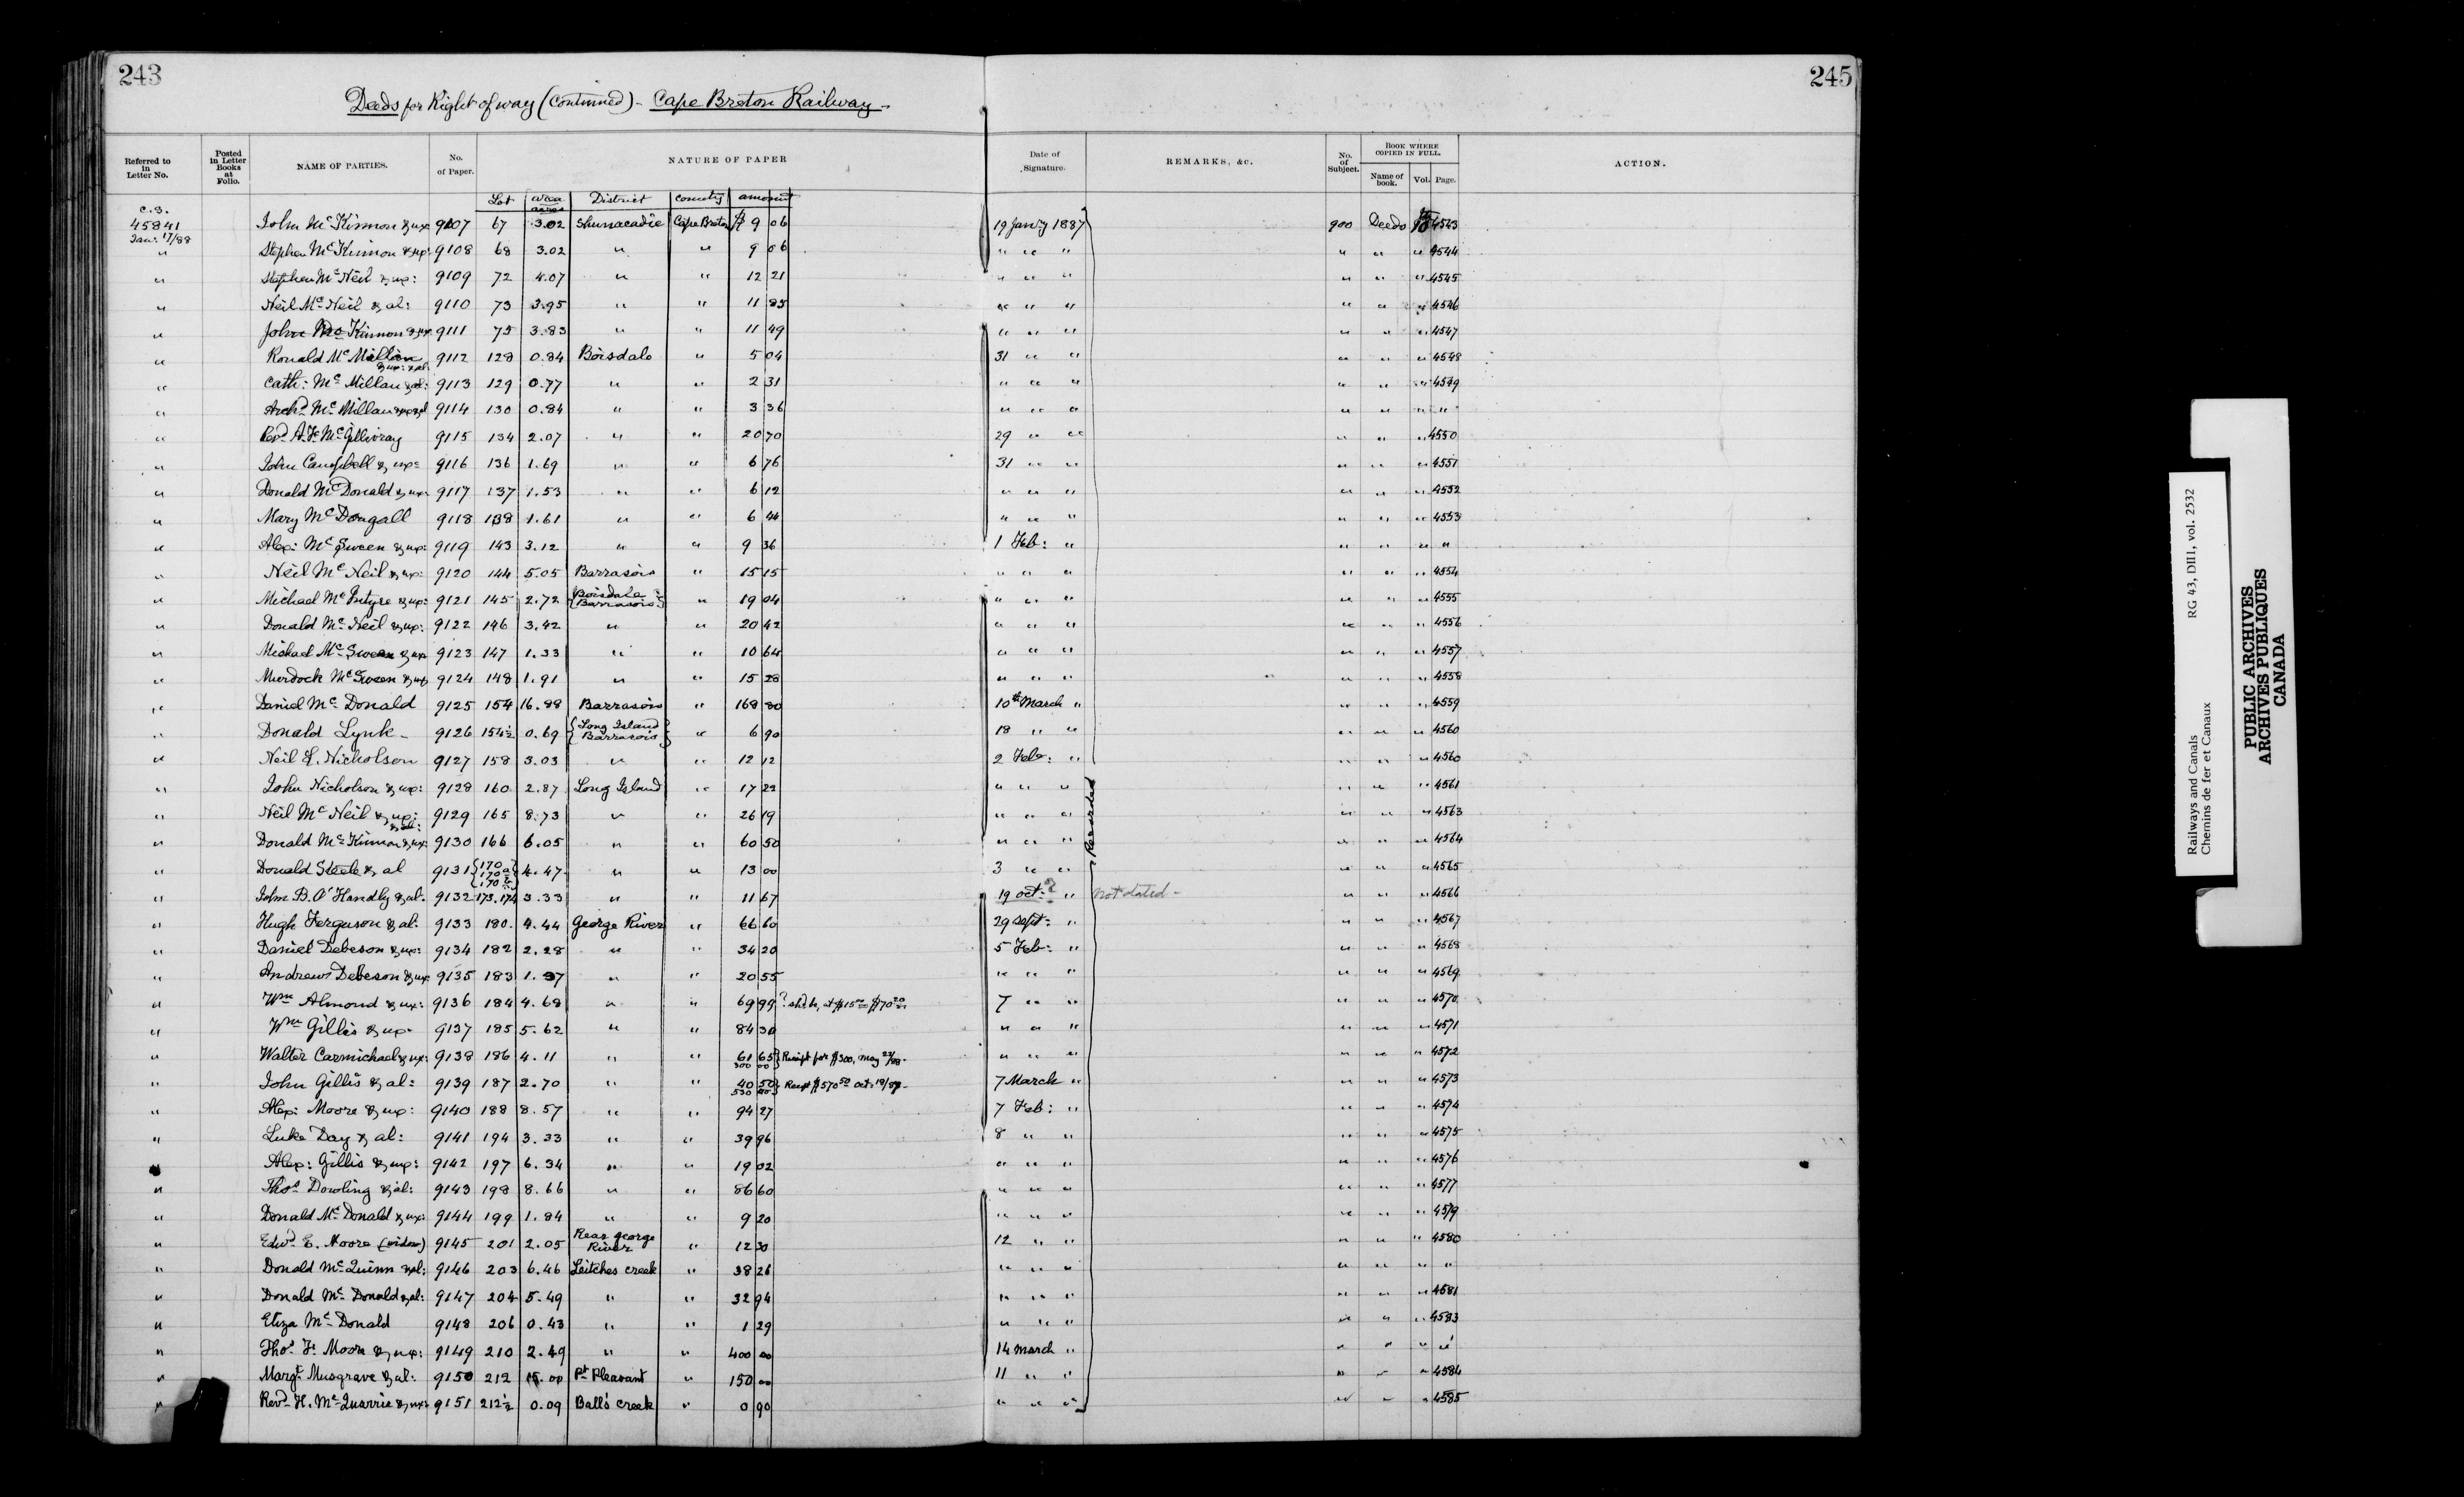 243
245
Deeds for Right of way (Continued) - Cape Breton Railway -
Referred to in Letter No. | Posted in Letter Books at Folio. | NAME OF PARTIES. | No. of Paper. | NATURE OF PAPER | Date of Signature. | REMARKS, &c. | No. of Subject. | BOOK WHERE COPIED IN FULL. Name of book. Vol. Page. | ACTION.
Lot | area acres | District | County | amount
C.S. 45841 Jan: 17/88 John Mc Kinnon & ux: 9107 67 3.02 Shunacadie Cape Breton $ 9 06 19 Janry 1887 900 Deeds 4543
" Stephen Mc Kinnon & ux: 9108 68 3.02 " " 9 06 " " " " " " 4544
" Stephen Mc Neil & ux: 9109 72 4.07 " " 12 21 " " " " " " 4545
" Neil Mc Neil & al: 9110 73 3.95 " " 11 85 " " " " " " 4546
" John Mc Kinnon & ux: 9111 75 3.83 " " 11 49 " " " " " " 4547
" Ronald Mc Millan & ux: & al: 9112 128 0.84 Boisdale " 5 04 31 " " " " " 4548
" Cath: Mc Millan & al: 9113 129 0.77 " " 2 31 " " " " " " 4549
" Archd Mc Millan & ux & al 9114 130 0.84 " " 3 36 " " " " " " "
" Revd A. F. Mc Gillivray 9115 134 2.07 " " 20 70 29 " " " " " 4550
" John Campbell & ux: 9116 136 1.69 " " 6 76 31 " " " " " 4551
" Donald Mc Donald & ux: 9117 137 1.53 " " 6 12 " " " " " " 4552
" Mary Mc Dougall 9118 138 1.61 " " 6 44 " " " " " " 4553
" Alex: Mc Sween & ux: 9119 143 3.12 " " 9 36 1 Feb: " " " " "
" Neil Mc Neil & ux: 9120 144 5.05 Barrasois " 15 15 " " " " " " 4554
" Michael Mc Intyre & ux: 9121 145 2.72 {Boisdale Barrasois} " 19 04 " " " " " " 4555
" Donald Mc Neil & ux: 9122 146 3.42 " " 20 42 " " " " " " 4556
" Michael Mc Sween & ux 9123 147 1.33 " " 10 64 " " " " " " 4557
" Murdock Mc Sween & ux 9124 148 1.91 " " 15 28 " " " " " " 4558
" Daniel Mc Donald 9125 154 16.88 Barrasois " 168 80 10th March " " " " 4559
" Donald Lynk - 9126 154½ 0.69 {Long Island Barrasois} " 6 90 18 " " " " " 4560
" Neil L. Nicholson 9127 158 3.03 " " 12 12 2 Feb: " " " " 4560
" John Nicholson & ux: 9128 160 2.87 Long Island " 17 22 " " " " " " 4561
" Neil Mc Neil & ux: & al: 9129 165 8.73 " " 26 19 " " " " " " 4563
" Donald Mc Kinnon & ux: 9130 166 6.05 " " 60 50 " " " " " " 4564
" Donald Steele & al 9131 {170 170 a 170 b} 4.47 " " 13 00 3 " " " " " 4565
Recorded
" John B. O'Handly & al: 9132 173.174 3.33 " " 11 67 19 Oct: ? " Not dated - " " " 4566
" Hugh Ferguson & al: 9133 180 4.44 George River " 66 60 29 Sept: " " " " 4567
" Daniel Debeson & ux: 9134 182 2.28 " " 34 20 5 Feb: " " " " 4568
" Andrew Debeson & ux 9135 183 1.37 " " 20 55 " " " " " " 4569
" Wm Almond & ux: 9136 184 4.68 " " 69 99 ? shd be, at $15 00 $70 20 7 " " " " " 4570
" Wm Gillis & ux: 9137 185 5.62 " " 84 30 " " " " " " 4571
" Walter Carmichael & ux: 9138 186 4.11 " " 61 65 300 00 } Receipt for $300, May 23/88 - " " " " " " 4572
" John Gillis & al: 9139 187 2.70 " " 40 50 530 00 } Receipt $570 50 Oct: 18/87 - 7 March " " " " 4573
" Alex: Moore & ux: 9140 188 8.57 " " 94 27 7 Feb: " " " " 4574
" Luke Day & al: 9141 194 3.33 " " 39 96 8 " " " " " 4575
" Alex: Gillis & ux: 9142 197 6.34 " " 19 02 " " " " " " 4576
" Thos Dowling & al: 9143 198 8.66 " " 86 60 " " " " " " 4577
" Donald Mc Donald & ux: 9144 199 1.84 " " 9 20 " " " " " " 4579
" Edwd E. Moore (widow) 9145 201 2.05 Rear George River " 12 30 12 " " " " " 4580
" Donald Mc Quinn & al: 9146 203 6.46 Leitches creek " 38 26 " " " " " " "
" Donald Mc Donald & al: 9147 204 5.49 " " 32 94 " " " " " " 4581
" Eliza Mc Donald 9148 206 0.43 " " 1 29 " " " " " " 4583
" Thos F. Moore & ux: 9149 210 2.49 " " 400 00 14 March " " " " "
" Margt Musgrave & al: 9150 212 15.00 Pt Pleasant " 150 00 11 " " " " " 4584
" Revd H. Mc Quarrie & ux: 9151 212½ 0.09 Ball's creek " 0 90 " " " " " " 4585
Railways and Canals RG 43, DIII, vol. 2532
Chemins de fer et Canaux
PUBLIC ARCHIVES
ARCHIVES PUBLIQUES
CANADA